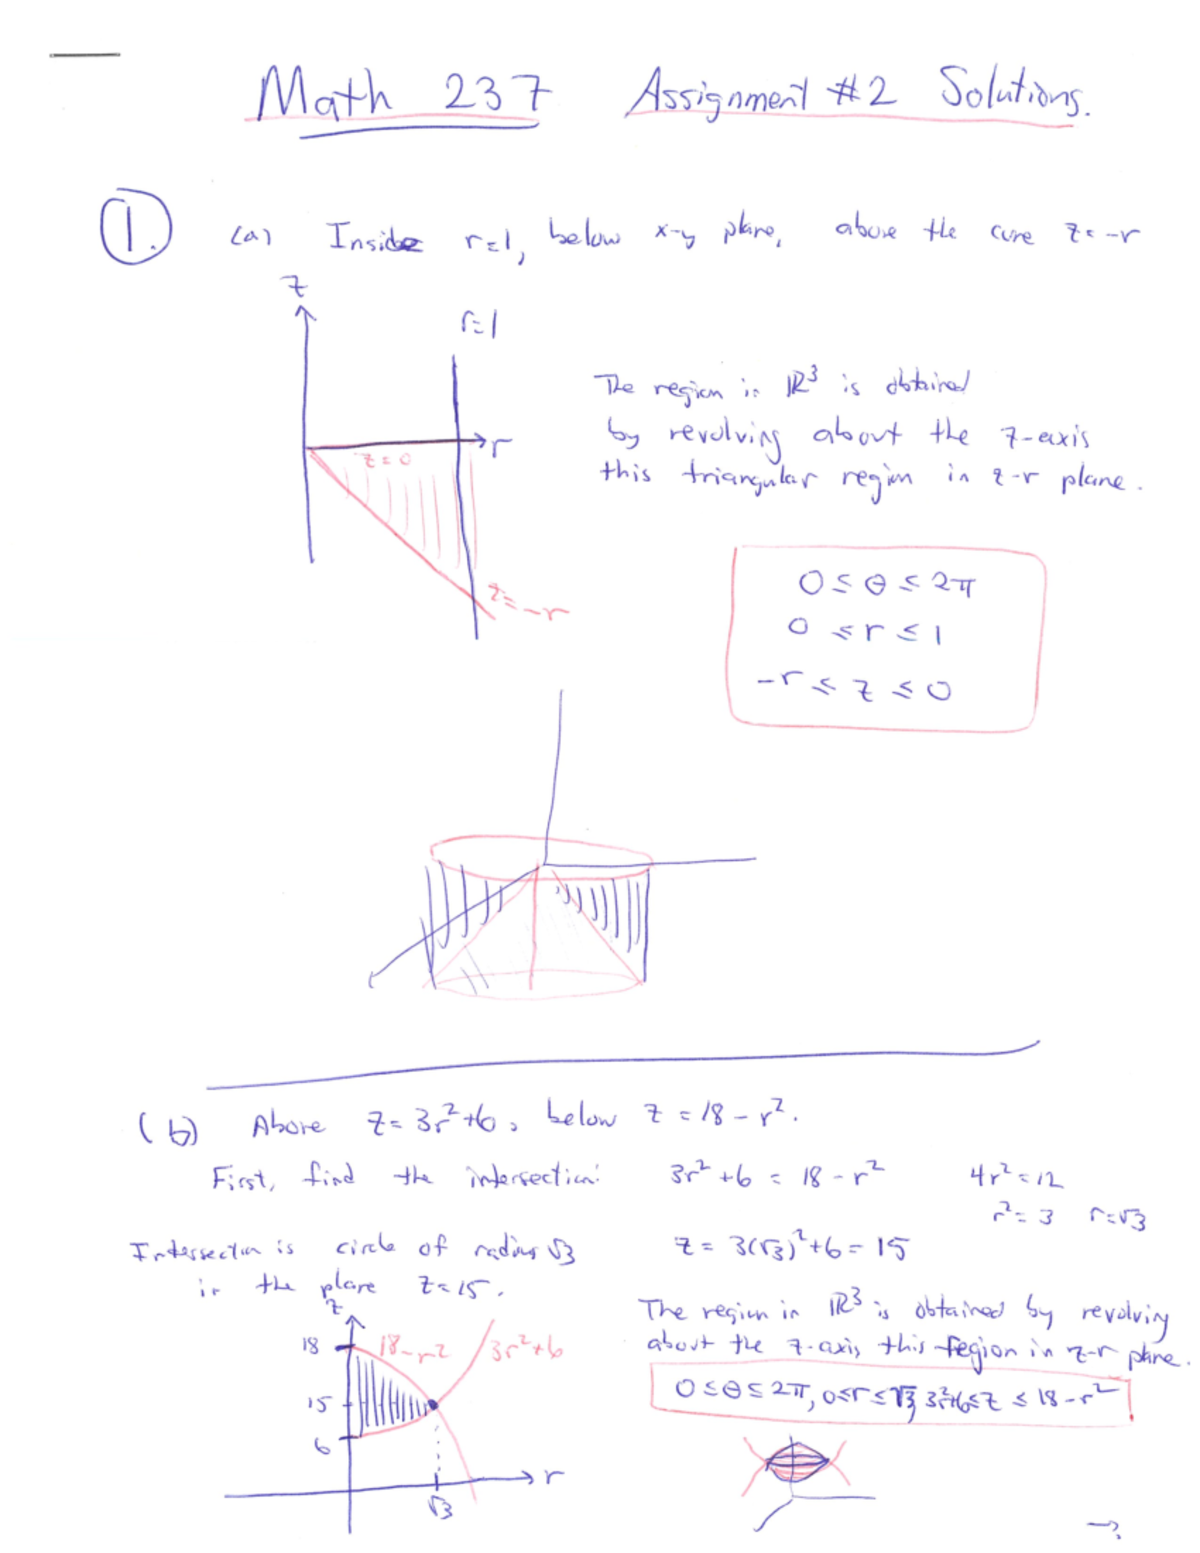 Math 237 Assignment #2 Solutions.
1. (a) Inside r=1, below x-y plane, above the cone z=-r
z
r=1
r
z=0
z=-r
The region in ℝ³ is obtained
by revolving about the z-axis
this triangular region in z-r plane.
0 ≤ θ ≤ 2π
0 ≤ r ≤ 1
-r ≤ z ≤ 0
(b) Above z=3r²+6, below z=18-r².
First, find the intersection: 3r²+6 = 18-r² 4r²=12
r²=3 r=√3
Intersection is circle of radius √3 z= 3(√3)²+6=15
in the plane z=15.
The region in ℝ³ is obtained by revolving
about the z-axis this region in z-r plane.
0≤θ≤2π, 0≤r≤√3, 3r²+6≤z≤18-r²
z
18
18-r²
3r²+6
15
6
r
√3